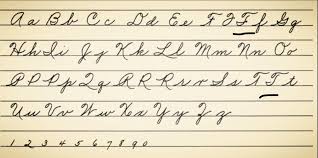 Aa Bb Cc Dd Ee F F f Gg
Hh Ii Jj Kk Ll Mm Nn Oo
P P Pp Qq R R Rr r Ss T T t
Uu Vv Ww Xx Yy Zz
1 2 3 4 5 6 7 8 9 0